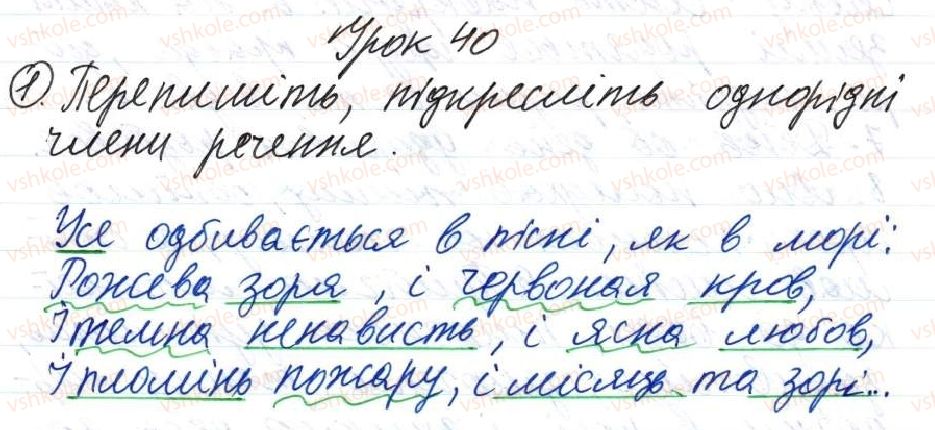 Урок 40
1. Перепишіть, підкресліть однорідні
члени речення.
Усе одбивається в пісні, як в морі:
Рожева зоря, і червоная кров,
І темна ненависть, і ясна любов,
І пломінь пожару, і місяць та зорі...